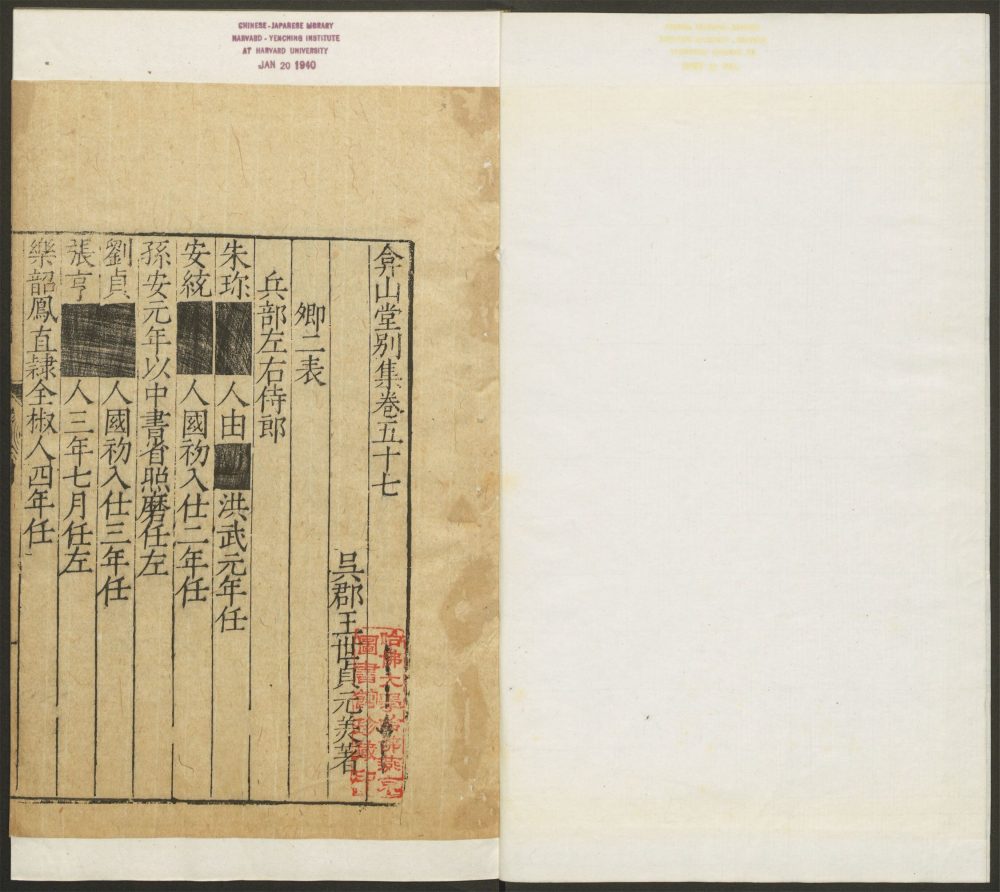 CHINESE-JAPANESE LIBRARY
HARVARD-YENCHING INSTITUTE
AT HARVARD UNIVERSITY
JAN 20 1940
弇山堂别集卷五十七
吳郡王世貞元美著
卿二表
兵部左右侍郎
朱珎 人由 洪武元年任
安統 人國初入仕二年任
孫安元年以中書省照磨任左
劉貞 人國初入仕三年任
張亨 人三年七月任左
樂韶鳳直隸全椒人四年任
哈佛大學哈佛燕京
圖書館珍藏印